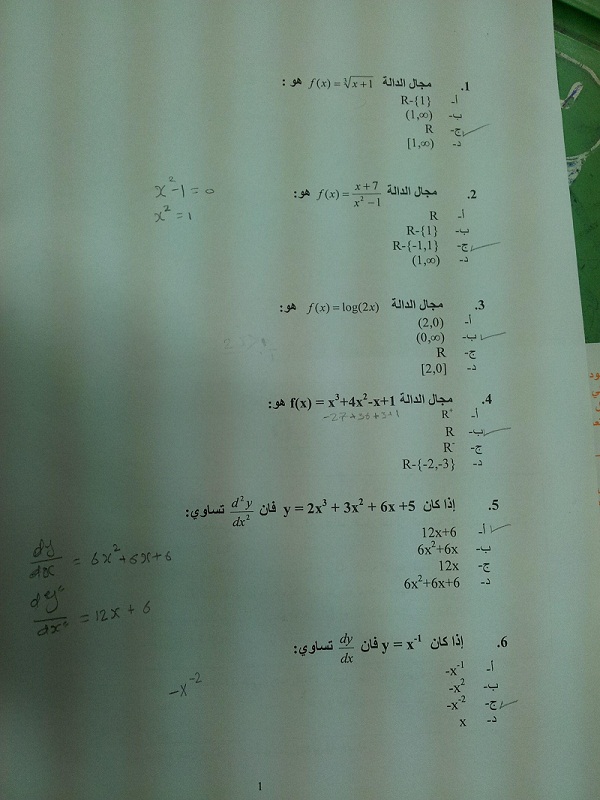 1. مجال الدالة f(x) = ∛(x+1) هو :
أ- R-{1}
ب- (1,∞)
ج- R
د- [1,∞)
2. مجال الدالة f(x) = (x+7)/(x² −1) هو:
x² - 1 = 0
x² = 1
أ- R
ب- R-{1}
ج- R-{-1,1}
د- (1,∞)
3. مجال الدالة f(x) = log(2x) هو:
أ- (2,0)
ب- (0,∞)
ج- R
د- [2,0]
4. مجال الدالة f(x) = x³+4x²-x+1 هو:
-27+36+3+1
أ- R⁺
ب- R
ج- R⁻
د- R-{-2,-3}
5. إذا كان y = 2x³ + 3x² + 6x +5 فان d²y/dx² تساوي:
أ- 12x+6
ب- 6x²+6x
ج- 12x
د- 6x²+6x+6
dy/dx = 6x²+6x+6
dy²/dx² = 12x + 6
6. إذا كان y = x⁻¹ فان dy/dx تساوي:
أ- -x⁻¹
ب- -x²
ج- -x⁻²
د- x
-x⁻²
1